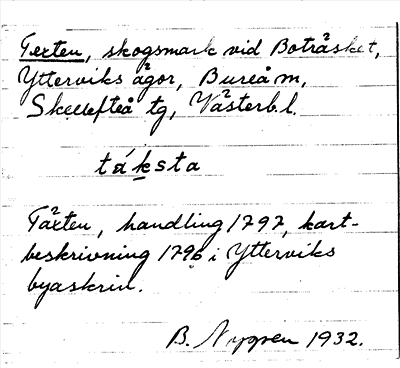 Texten, skogsmark vid Boträsket,
Ytterviks ägor, Bureå m,
Skellefteå tg, Västerb.l.
táksta
Täxten, handling 1797, kart-
beskrivning 1796 i Ytterviks
byaskrin.
B. Nygren 1932.